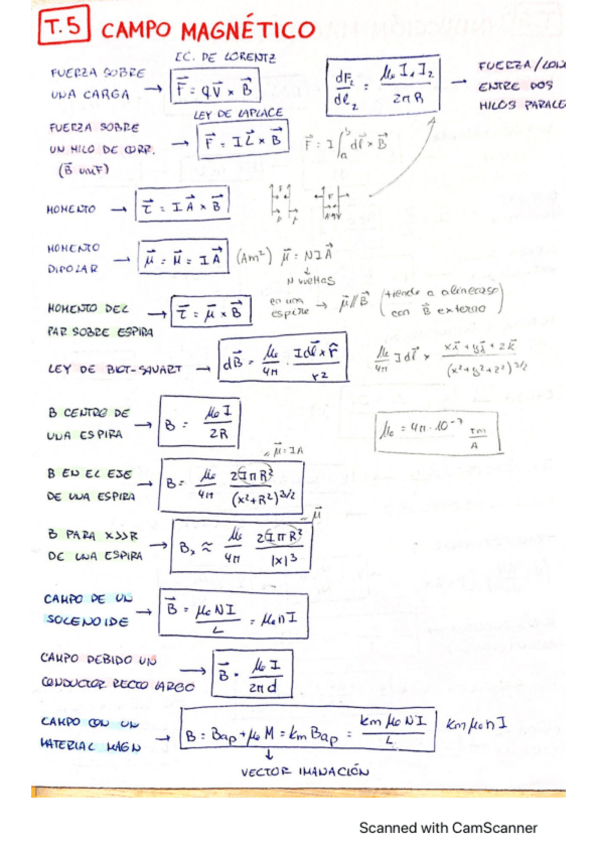 T.5 CAMPO MAGNÉTICO
EC. DE LORENTZ
FUERZA SOBRE
UNA CARGA → F⃗ = qV⃗ × B⃗
dF₂/dl₂ = μ₀ I₁ I₂ / 2πR → FUERZA/
ENTRE DOS
HILOS
LEY DE LAPLACE
FUERZA SOBRE
UN HILO DE CORR. → F⃗ = I L⃗ × B⃗ F⃗ = I ∫ₐᵇ dl⃗ × B⃗
(B⃗ unif)
MOMENTO → τ⃗ = I A⃗ × B⃗
MOMENTO
DIPOLAR → μ⃗ = M⃗ = I A⃗ (Am²) μ⃗ = N I A⃗
↓
N vueltas
MOMENTO DEL
PAR SOBRE ESPIRA → τ⃗ = μ⃗ × B⃗ en una espira → μ⃗ // B⃗ (tiende a alinearse
con B⃗ externo)
LEY DE BIOT-SAVART → dB⃗ = μ₀/4π · I dl⃗ × r̂ / r² μ₀/4π I dl⃗ × xî + yĵ + zk̂ / (x²+y²+z²)^3/2
B CENTRO DE
UNA ESPIRA → B = μ₀ I / 2R
μ₀ = 4π · 10⁻⁷ Tm/A
μ⃗ = IA
B EN EL EJE
DE UNA ESPIRA → B = μ₀/4π 2IπR² / (x²+R²)^3/2
μ⃗
B PARA X>>R
DE UNA ESPIRA → Bₓ ≈ μ₀/4π 2IπR² / |x|³
CAMPO DE UN
SOLENOIDE → B⃗ = μ₀ N I / L = μ₀ n I
CAMPO DEBIDO UN
CONDUCTOR RECTO LARGO → B⃗ = μ₀ I / 2πd
CAMPO CON UN
MATERIAL MAGN → B = Bap + μ₀ M = km Bap = km μ₀ N I / L km μ₀ n I
↓
VECTOR IMANACIÓN
Scanned with CamScanner